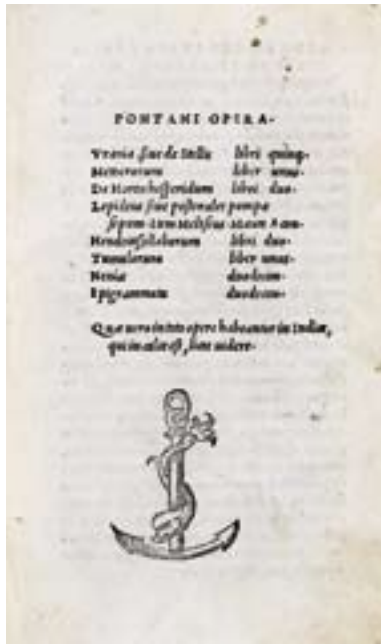 PONTANI OPERA.
Vrania, siue de Stellis libri quinq.
Meteororum liber unus.
De Hortis hesperidum libri duo.
Lepidina siue postorales pompæ
septem. Item Meliseus. Mæon. Acon.
Hendecasyllaborum libri duo.
Tumulorum liber unus.
Neniæ duodecim.
Epigrammata duodecim.
Quæ uero in toto opere habeantur in Indice,
qui in calce est, licet uidere.